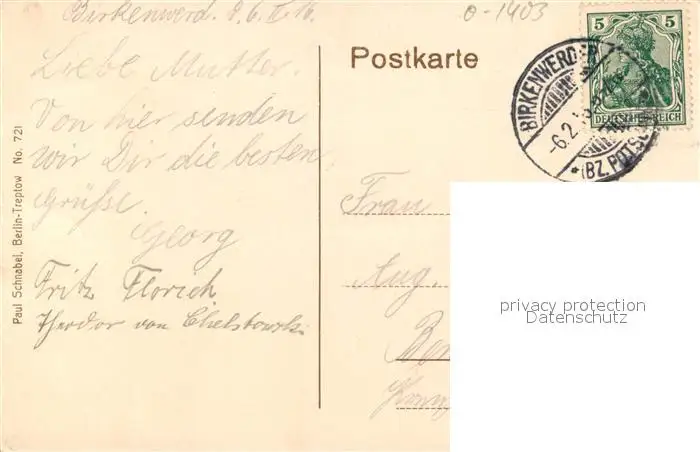 Birkenwerd. d. 6. II. 16.
0-1403
Liebe Mutter.
Von hier senden
wir Dir die besten
Grüße.
Georg
Fritz Florich
Theodor von
Paul Schnabel, Berlin-Treptow No. 721
Postkarte
5 5
DEUTSCHES REICH
BIRKENWERDER
-6.2.
*(BZ. POTSD
Frau
Aug
privacy protection
Datenschutz